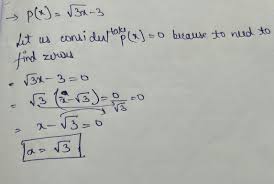 → p(x) = √3x - 3
Let us consider take p(x) = 0 because to need to
find zeros
= √3x - 3 = 0
= √3 (x - √3) = 0/√3 = 0
= x - √3 = 0
x = √3